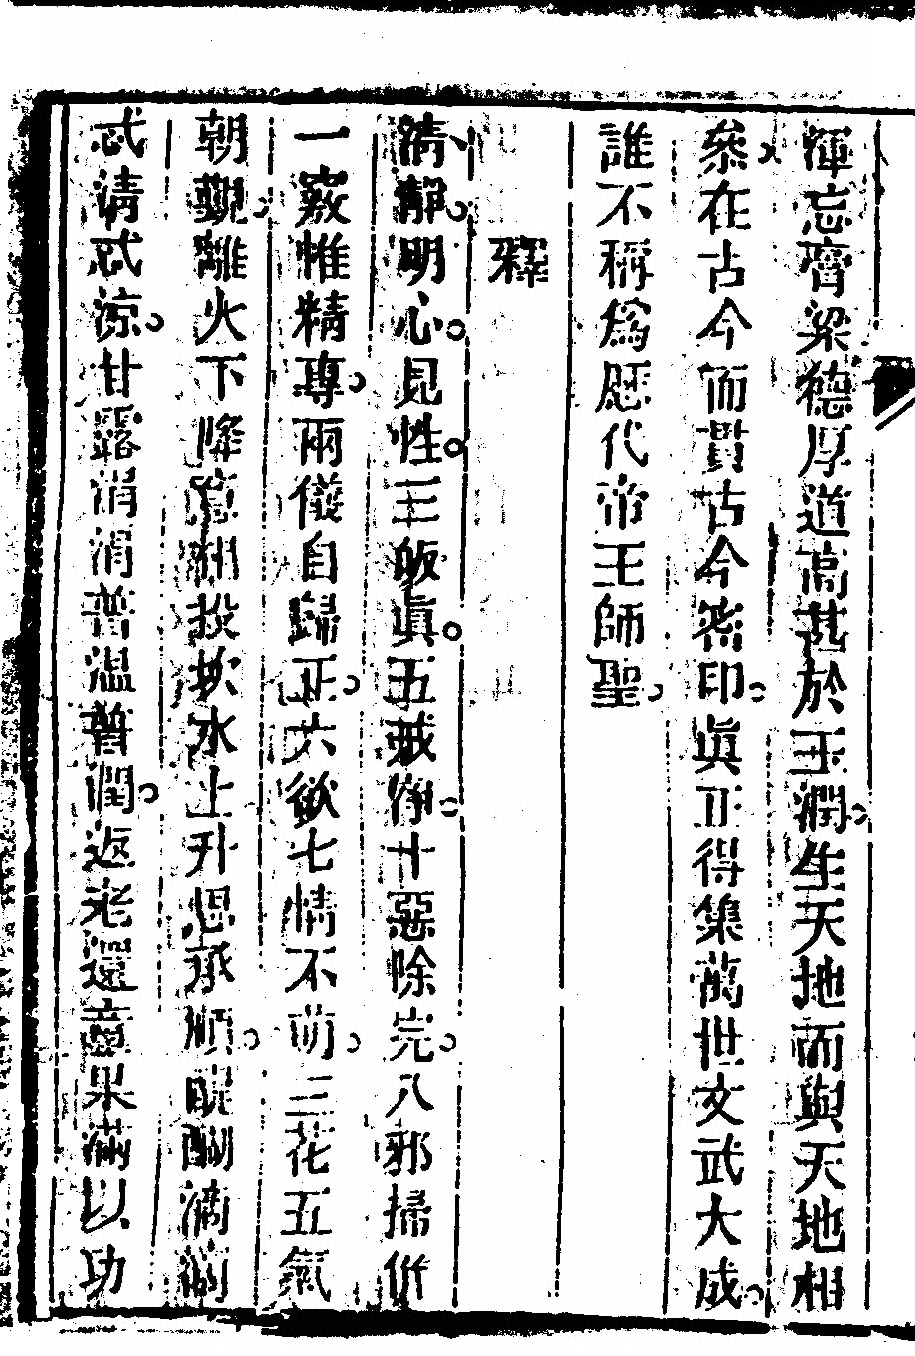 渾忘齊梁德厚道高甚於玉潤生天地而與天地相
叅在古今而貫古今密印真正得集萬世文武大成
誰不稱爲歴代帝王師聖
釋
清靜明心見性三皈眞五戒淨十惡除完八邪掃併
一竅惟精專兩儀自歸正六欲七情不萌三花五氣
朝觀離火下降意州投坎水上升思承順醍醐滴滴
忒清忒涼甘露涓涓普温普潤返老還童果滿以功